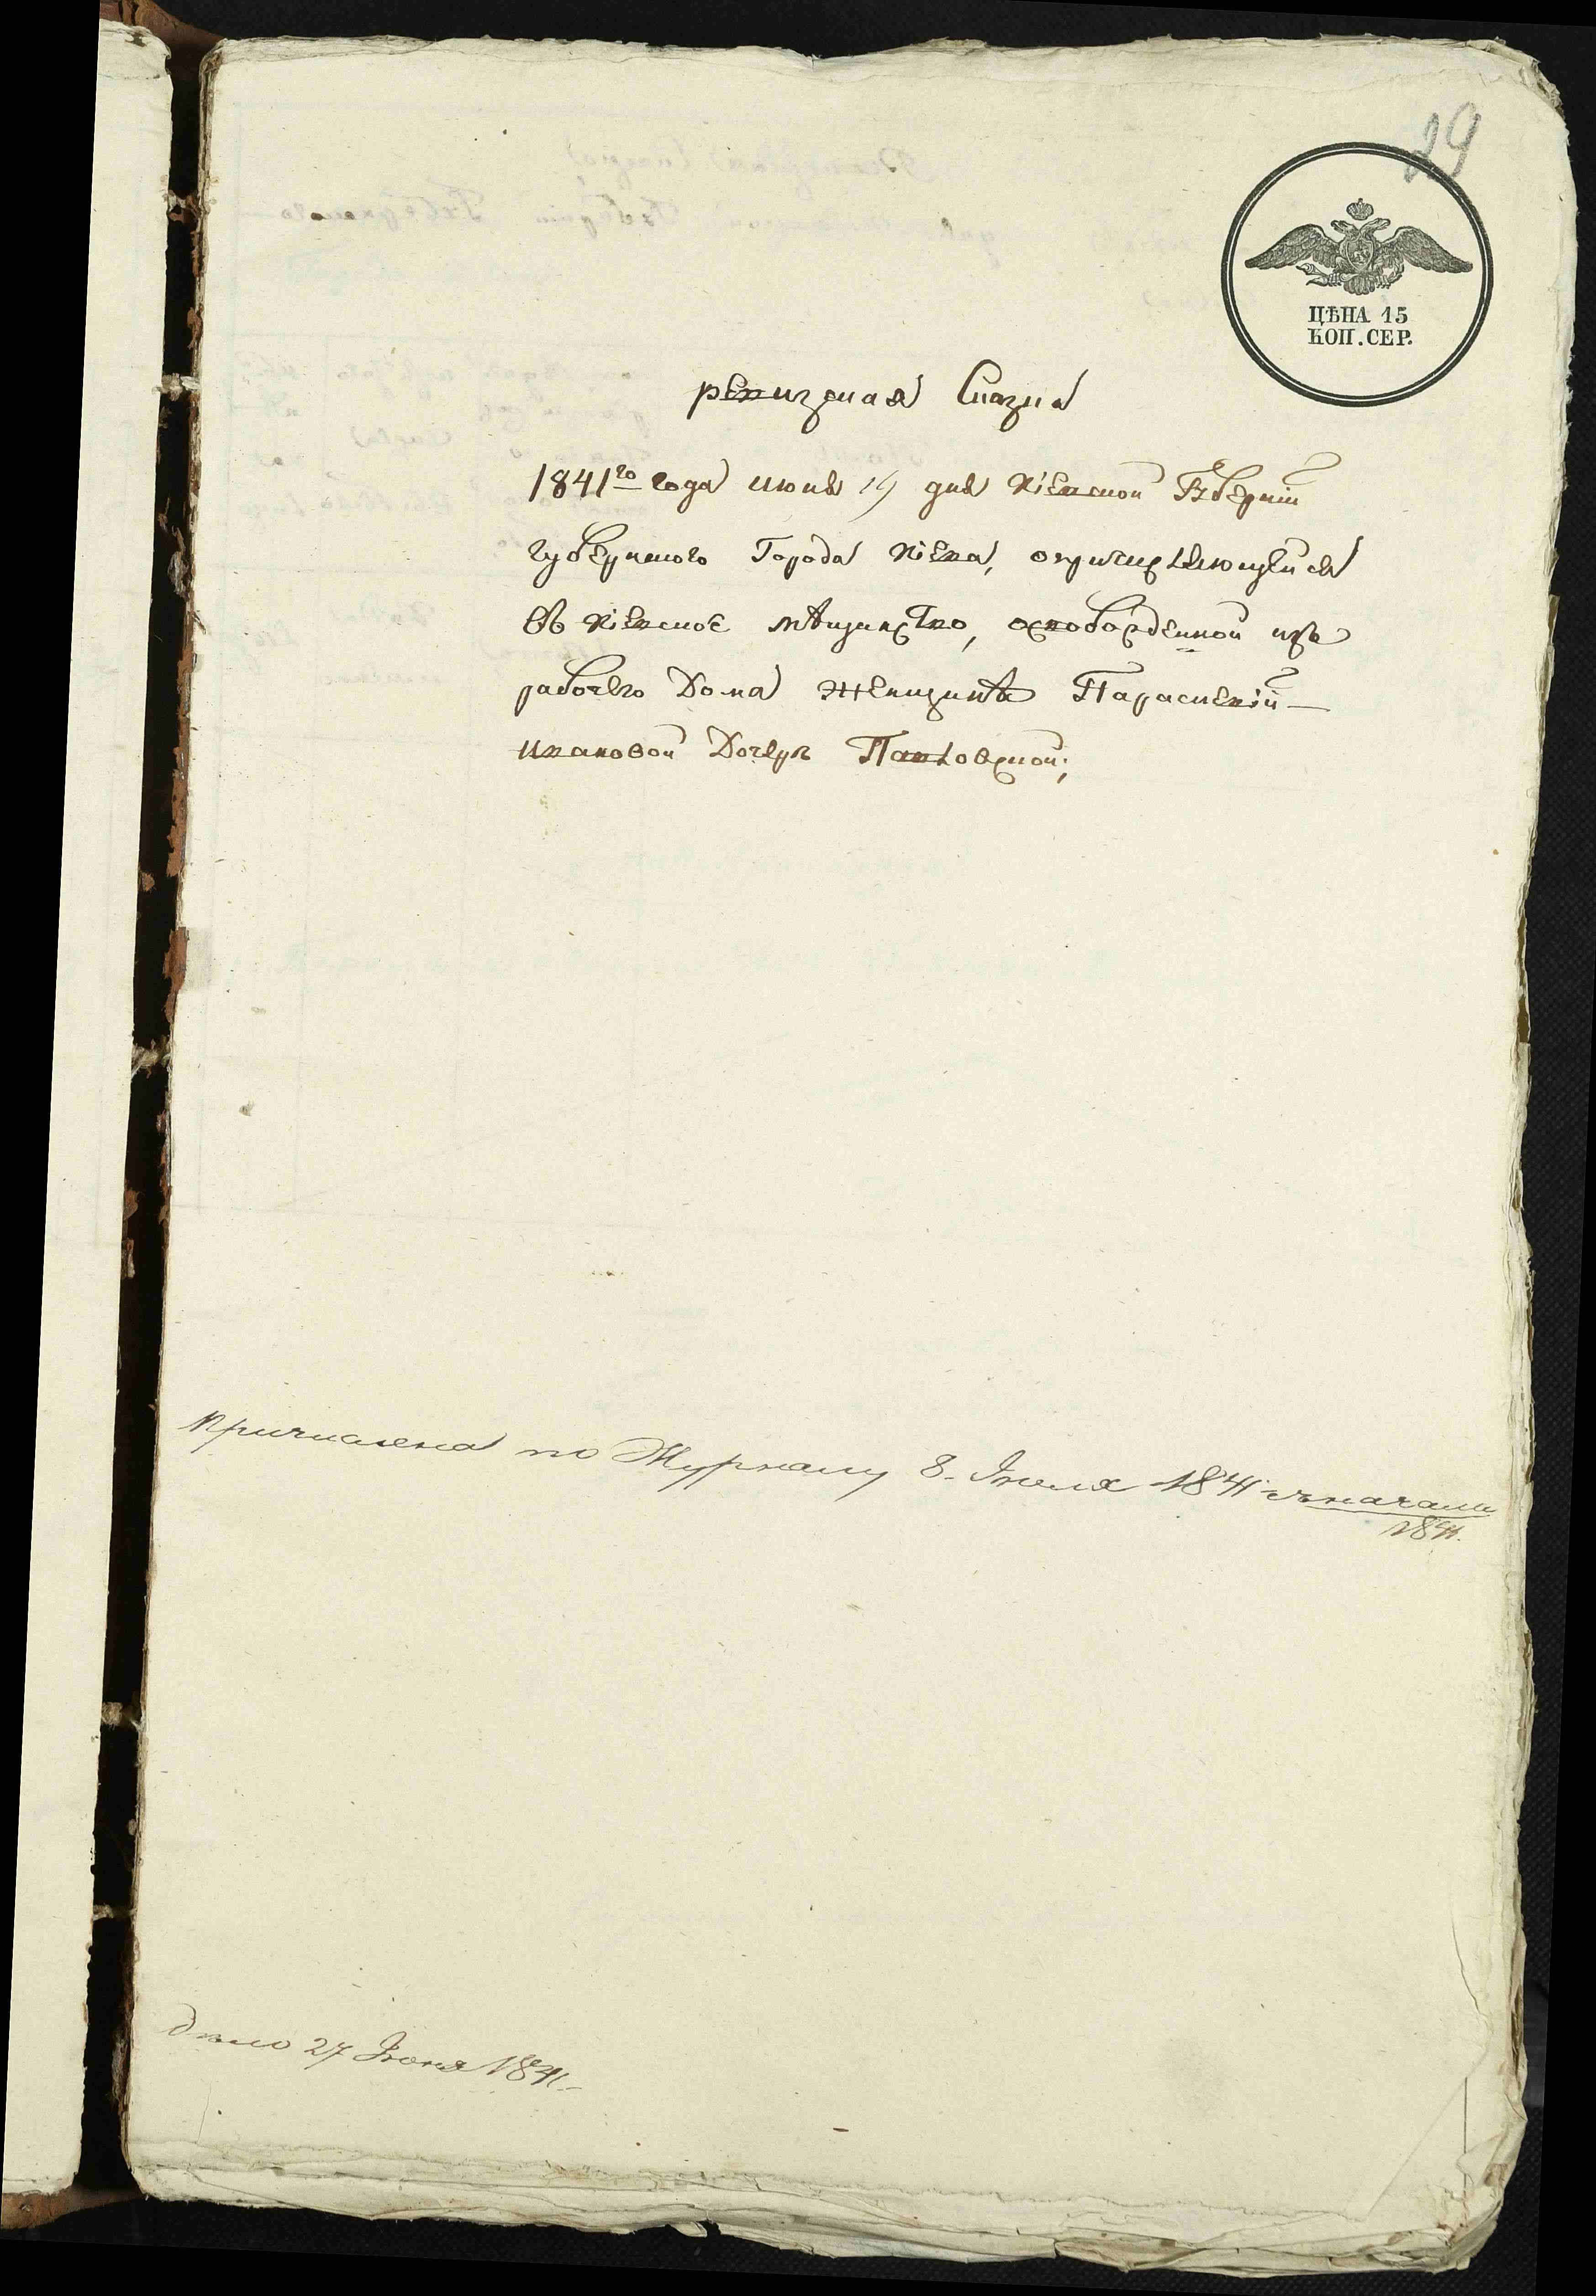 29
ЦѢНА 15
КОП. СЕР.
ревизская Сказка
1841го года июня 19 дня Кіевской Губерніи
губернского Города Кіева, о причисляющейся
въ Кіевское мѣщинство, освобожденной изъ
рабочего Дома женщинѣ Параскевій
Ивановой Дочерѣ Павловской;
Причислена по Журналу 8. Іюля 1841 съ начала
1841.
дѣло 27 Іюня 1841.